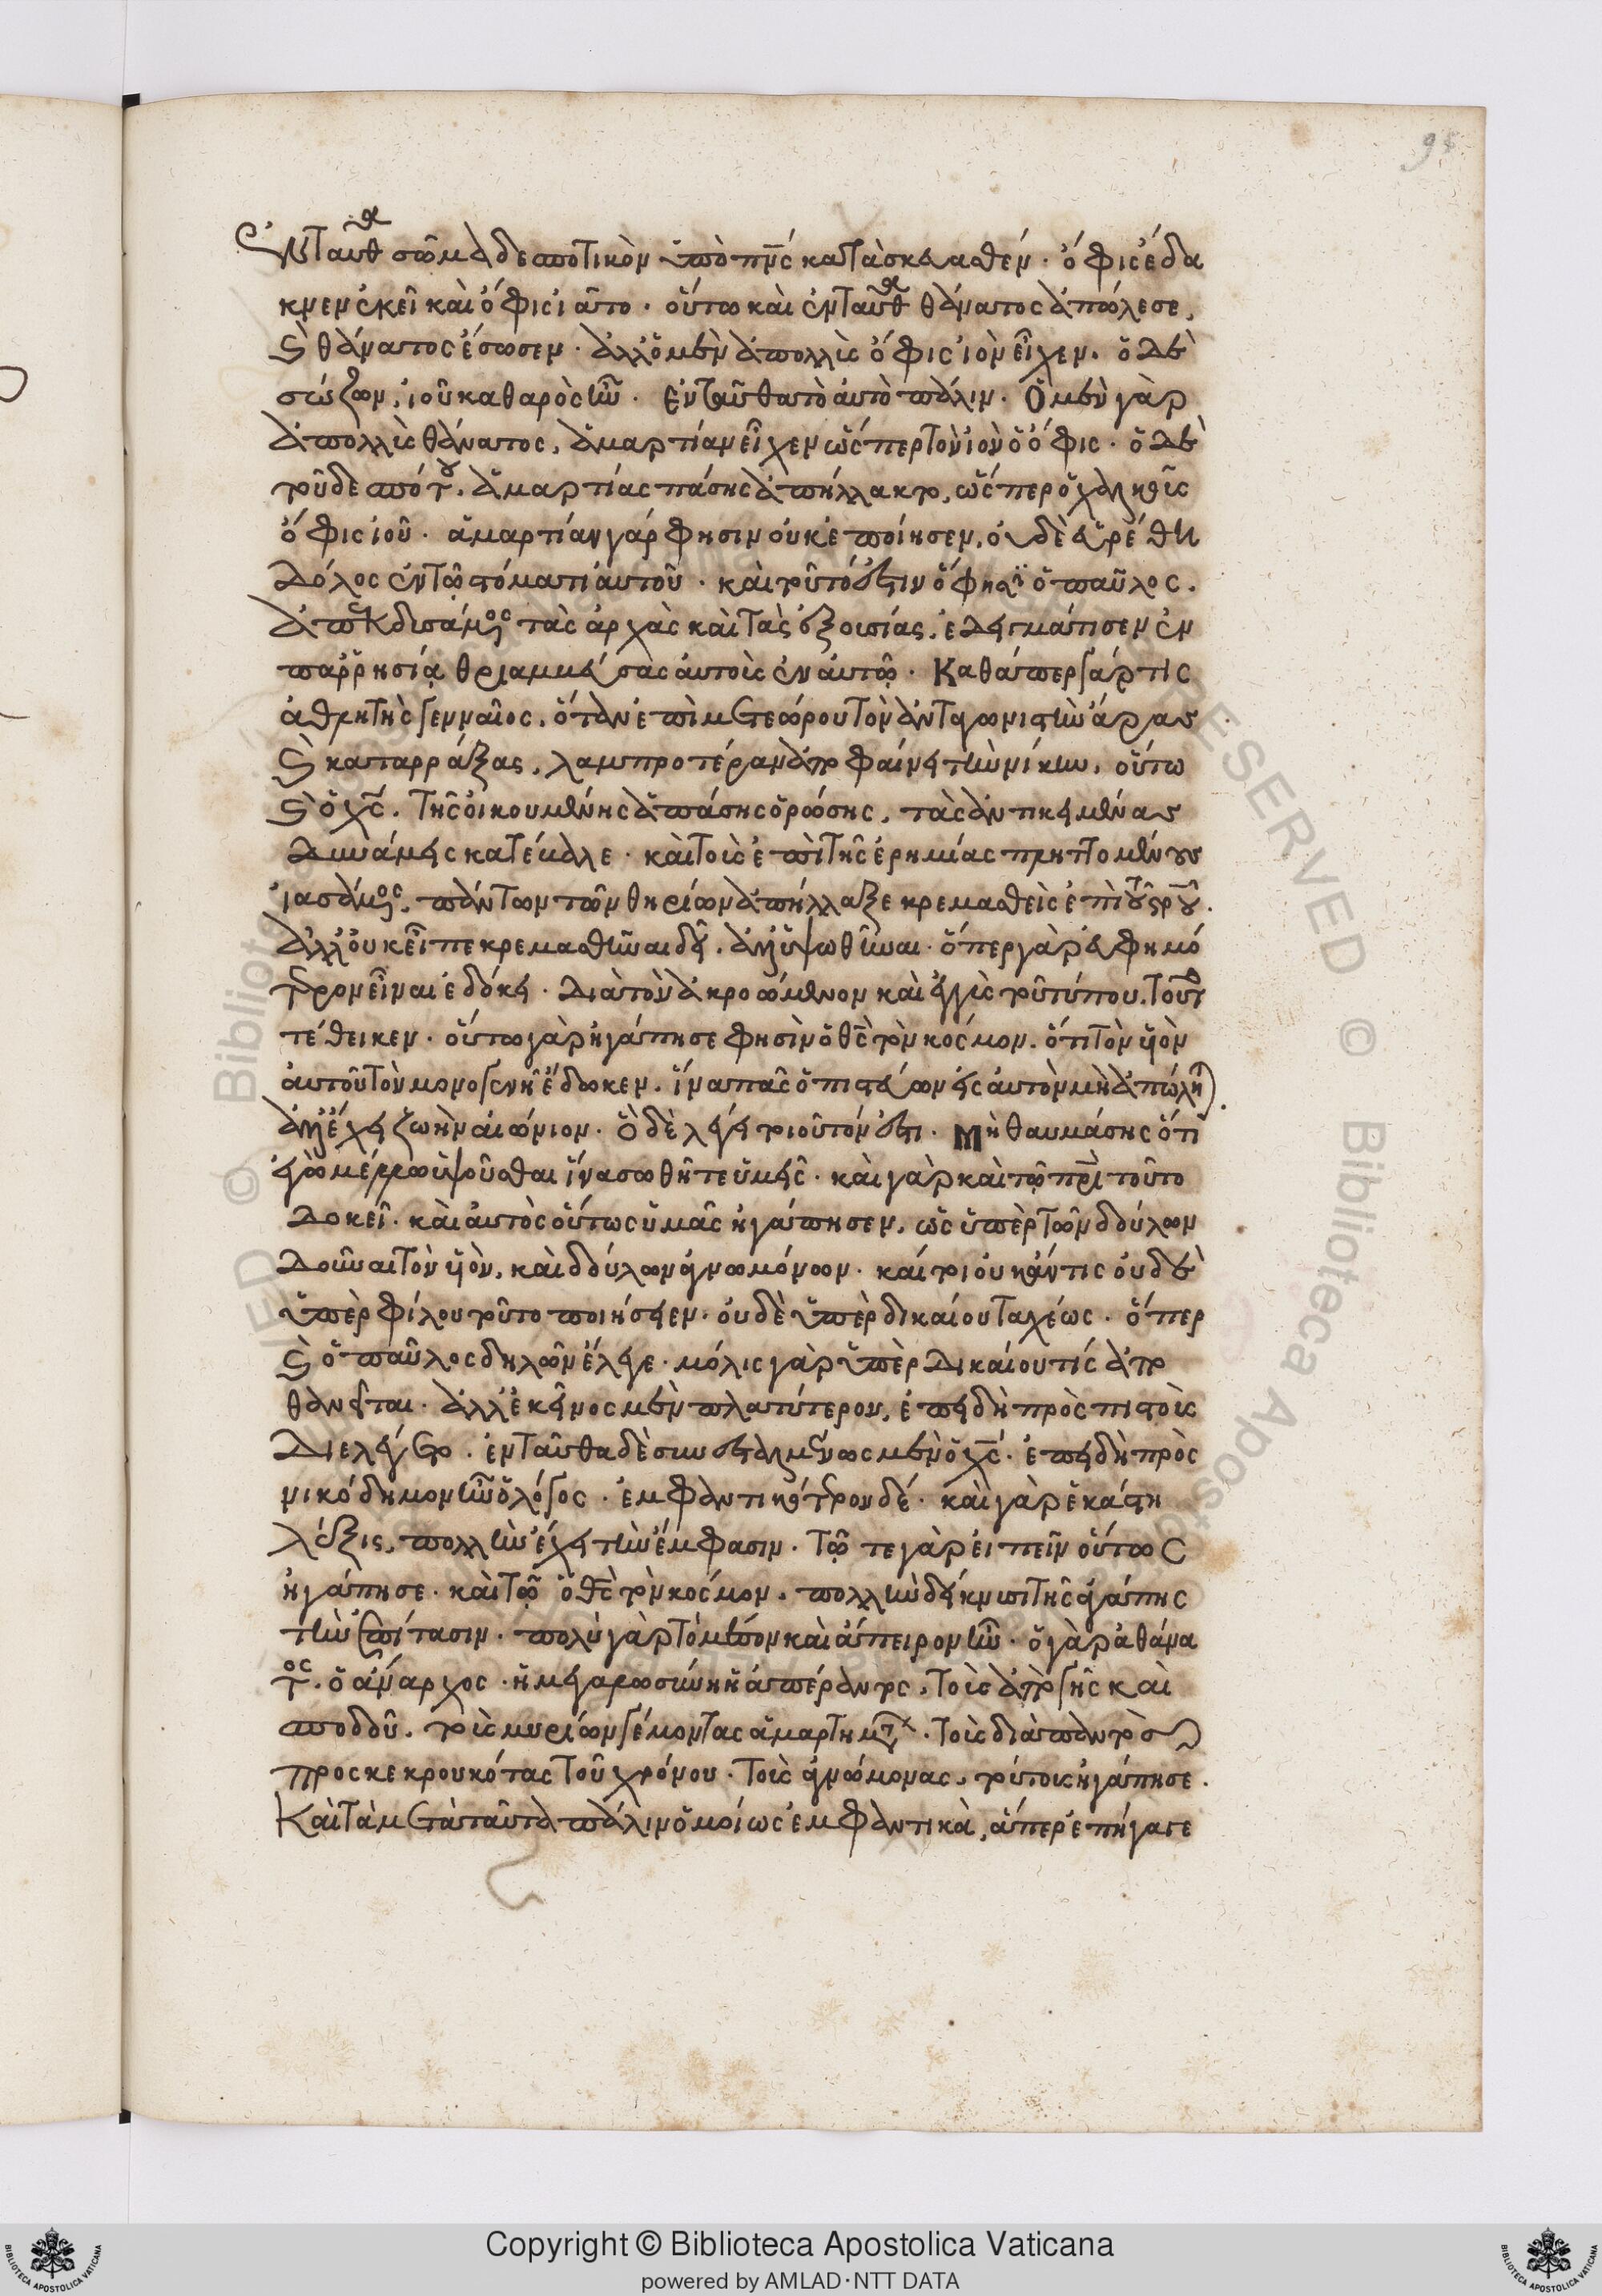 ἐνταῦθα σῶμα δεσποτικὸν ὑπὸ πν̅ς κατασκευασθέν · ὄφις ἔδα
κνεν ἐκεῖ καὶ ὄφις ἰᾶτο · οὕτω καὶ ἐνταῦθα θάνατος ἀπώλεσε,
καὶ θάνατος ἔσωσεν · ἀλλ' ὁ μὲν ἀπολλὺς ὄφις ἰὸν εἶχεν. ὁ δὲ
σώζων, ἰοῦ καθαρὸς ἦν · Ἐνταῦθα τὸ αὐτὸ πάλιν · Ὁ μὲν γὰρ
ἀπολλὺς θάνατος, ἁμαρτίαν εἶχεν ὥσπερ τὸν ἰὸν ὁ ὄφις · ὁ δὲ
τοῦ δεσπότου, ἁμαρτίας πάσης ἀπήλλακτο, ὥσπερ ὁ χαλκοῦς
ὄφις ἰοῦ · ἁμαρτίαν γάρ φησιν οὐκ ἐποίησεν, οὐδὲ εὑρέθη
δόλος ἐν τῷ στόματι αὐτοῦ · καὶ τοῦτό ἐστιν ὅ φησι ὁ παῦλος.
ἀπεκδυσάμενος τὰς ἀρχὰς καὶ τὰς ἐξουσίας, ἐδειγμάτισεν ἐν
παρρησίᾳ θριαμβεύσας αὐτοὺς ἐν αὐτῷ · Καθάπερ γάρ τις
ἀθλητὴς γενναῖος, ὅταν ἐπὶ μετεώρου τὸν ἀνταγωνιστὴν ἄρας
καὶ καταρράξας, λαμπροτέραν ἀποφαίνει τὴν νίκην, οὕτω
καὶ ὁ χς̅, τῆς οἰκουμένης ἁπάσης ὁρώσης, τὰς ἀντικειμένας
δυνάμεις κατέβαλε · καὶ τοὺς ἐπὶ τῆς ἐρημίας πληττομένους
ἰασάμενος, πάντων τῶν θηρίων ἀπήλλαξε κρεμασθεὶς ἐπὶ τοῦ στ̅ροῦ.
ἀλλ' οὐκ εἶπε κρεμασθῆναι δεῖ, ἀλλ' ὑψωθῆναι · ὅπερ γὰρ εὐφημό
τερον εἶναι ἐδόκει · διὰ τὸν ἀκροώμενον καὶ ἐγγὺς τοῦ τύπου, τοῦτο
τέθεικεν · οὕτω γὰρ ἠγάπησε φησὶν ὁ θς̅ τὸν κόσμον, ὅτι τὸν υἱὸν
αὐτοῦ τὸν μονογενῆ ἔδωκεν, ἵνα πᾶς ὁ πιστεύων εἰς αὐτὸν μὴ ἀπώληται.
ἀλλ' ἔχῃ ζωὴν αἰώνιον · Ὃ δὲ λέγει τοιοῦτόν ἐστι · Μὴ θαυμάσῃς ὅτι
ἐγὼ μέλλω ὑψοῦσθαι ἵνα σωθῆτε ὑμεῖς · καὶ γὰρ καὶ τῷ πρ̅ὶ τοῦτο
δοκεῖ · καὶ αὐτὸς οὕτως ὑμᾶς ἠγάπησεν, ὡς ὑπὲρ τῶν δούλων
δοῦναι τὸν υἱὸν, καὶ δούλων ἀγνωμόνων · καίτοι οὐκ ἄν τις οὐδὲ
ὑπὲρ φίλου τοῦτο ποιήσειεν, οὐδὲ ὑπὲρ δικαίου ταχέως · ὅπερ
καὶ ὁ παῦλος δηλῶν ἔλεγε · μόλις γὰρ ὑπὲρ δικαίου τίς ἀπο
θανεῖται · ἀλλ' ἐκεῖνος μὲν πλατύτερον, ἐπειδὴ πρὸς πιστοὺς
διελέγετο · ἐνταῦθα δὲ συνεσταλμένως μὲν ὁ χς̅ · ἐπειδὴ πρὸς
νικόδημον ἦν ὁ λόγος · ἐμφαντικώτερον δέ · καὶ γὰρ ἑκάστη
λέξις, πολλὴν ἔχει τὴν ἔμφασιν · Τῷ τε γὰρ εἰπεῖν οὕτως
ἠγάπησε · καὶ τῷ ὁ θς̅ τὸν κόσμον, πολλὴν δείκνυσι τῆς ἀγάπης
τὴν ἐπίτασιν · πολὺ γὰρ τὸ μέσον καὶ ἄπειρον ἦν · ὁ γὰρ ἀθάνα
τος, ὁ ἄναρχος · ἡ μεγαλωσύνη ἡ ἀπέραντος, τοὺς ἀπὸ γῆς καὶ
σποδοῦ, τοὺς μυρίων γέμοντας ἁμαρτημάτων · τοὺς διὰ παντὸς
προσκεκρουκότας τοῦ χρόνου · τοὺς ἀγνώμονας, τούτους ἠγάπησε.
Καὶ τὰ μετὰ ταῦτα πάλιν ὁμοίως ἐμφαντικὰ, ἅπερ ἐπήγαγε